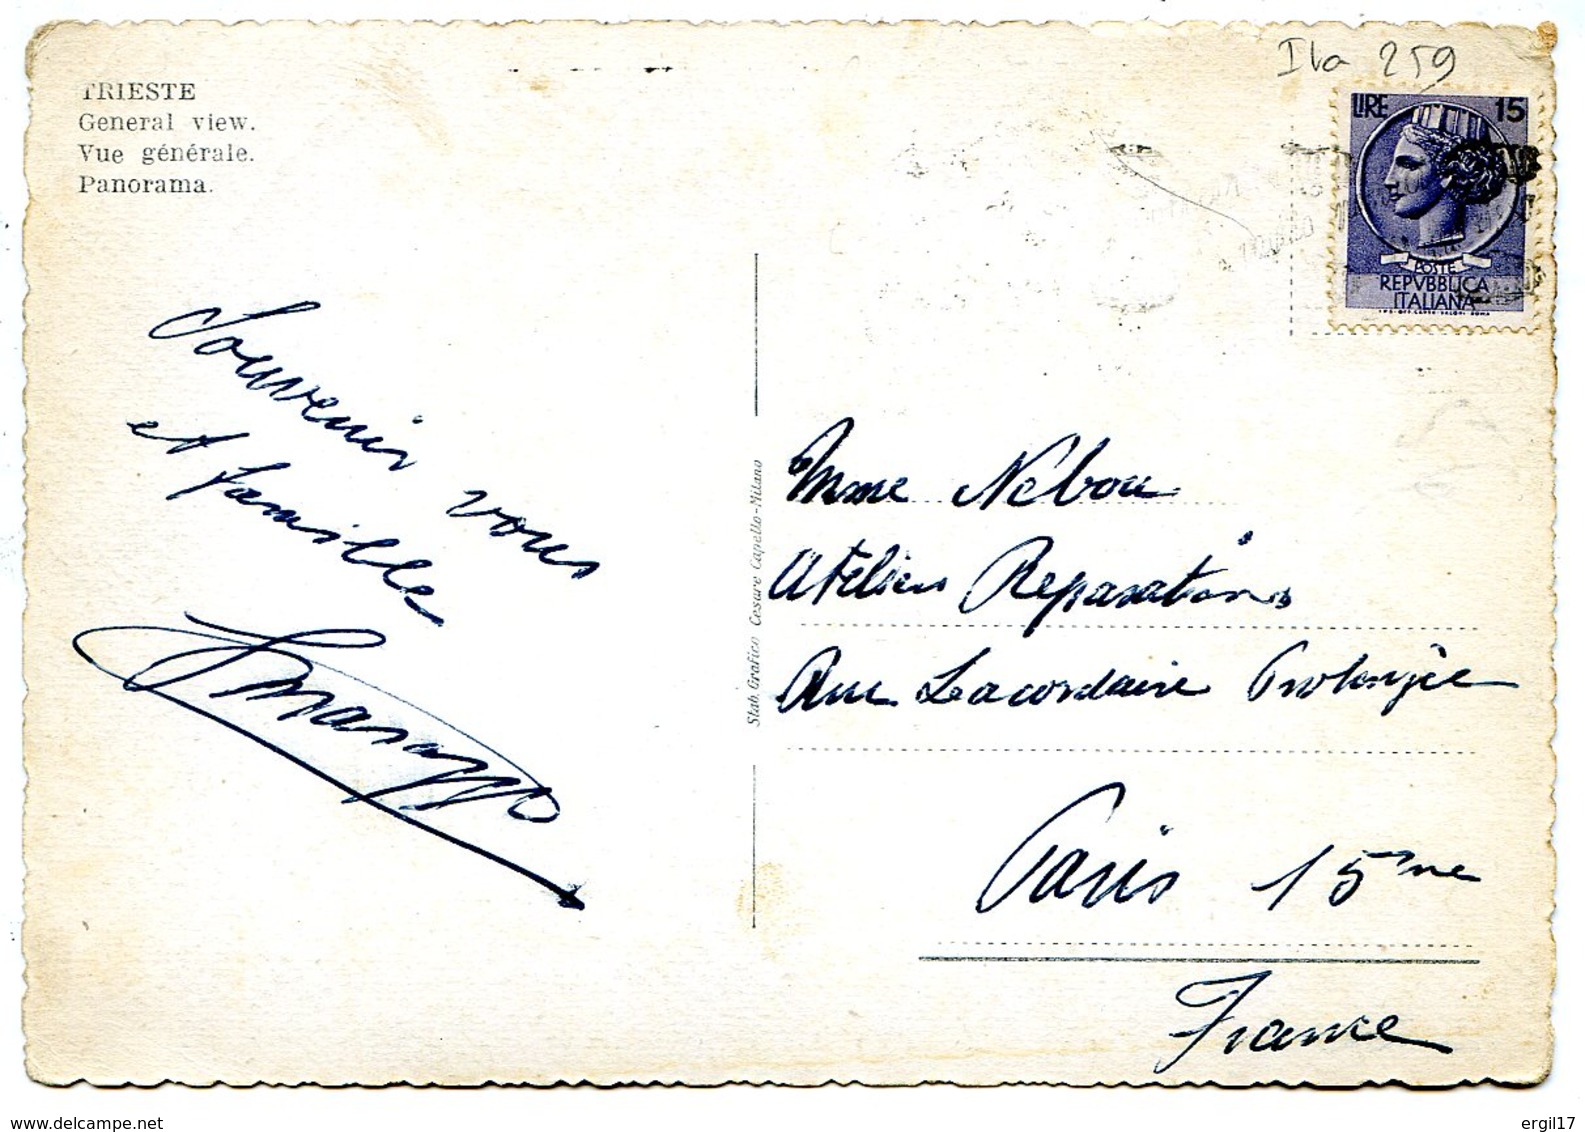 TRIESTE
General view.
Vue générale.
Panorama.
Souvenir vous
et famille
Stab. Grafico Cesare Capello-Milano
Ita 259
LIRE 15
POSTE
REPVBBLICA
ITALIANA
Mme Nébou
Atelier Reparations
Rue Lacordaire Prolongée
Paris 15me
France
www.delcampe.net
ergil17